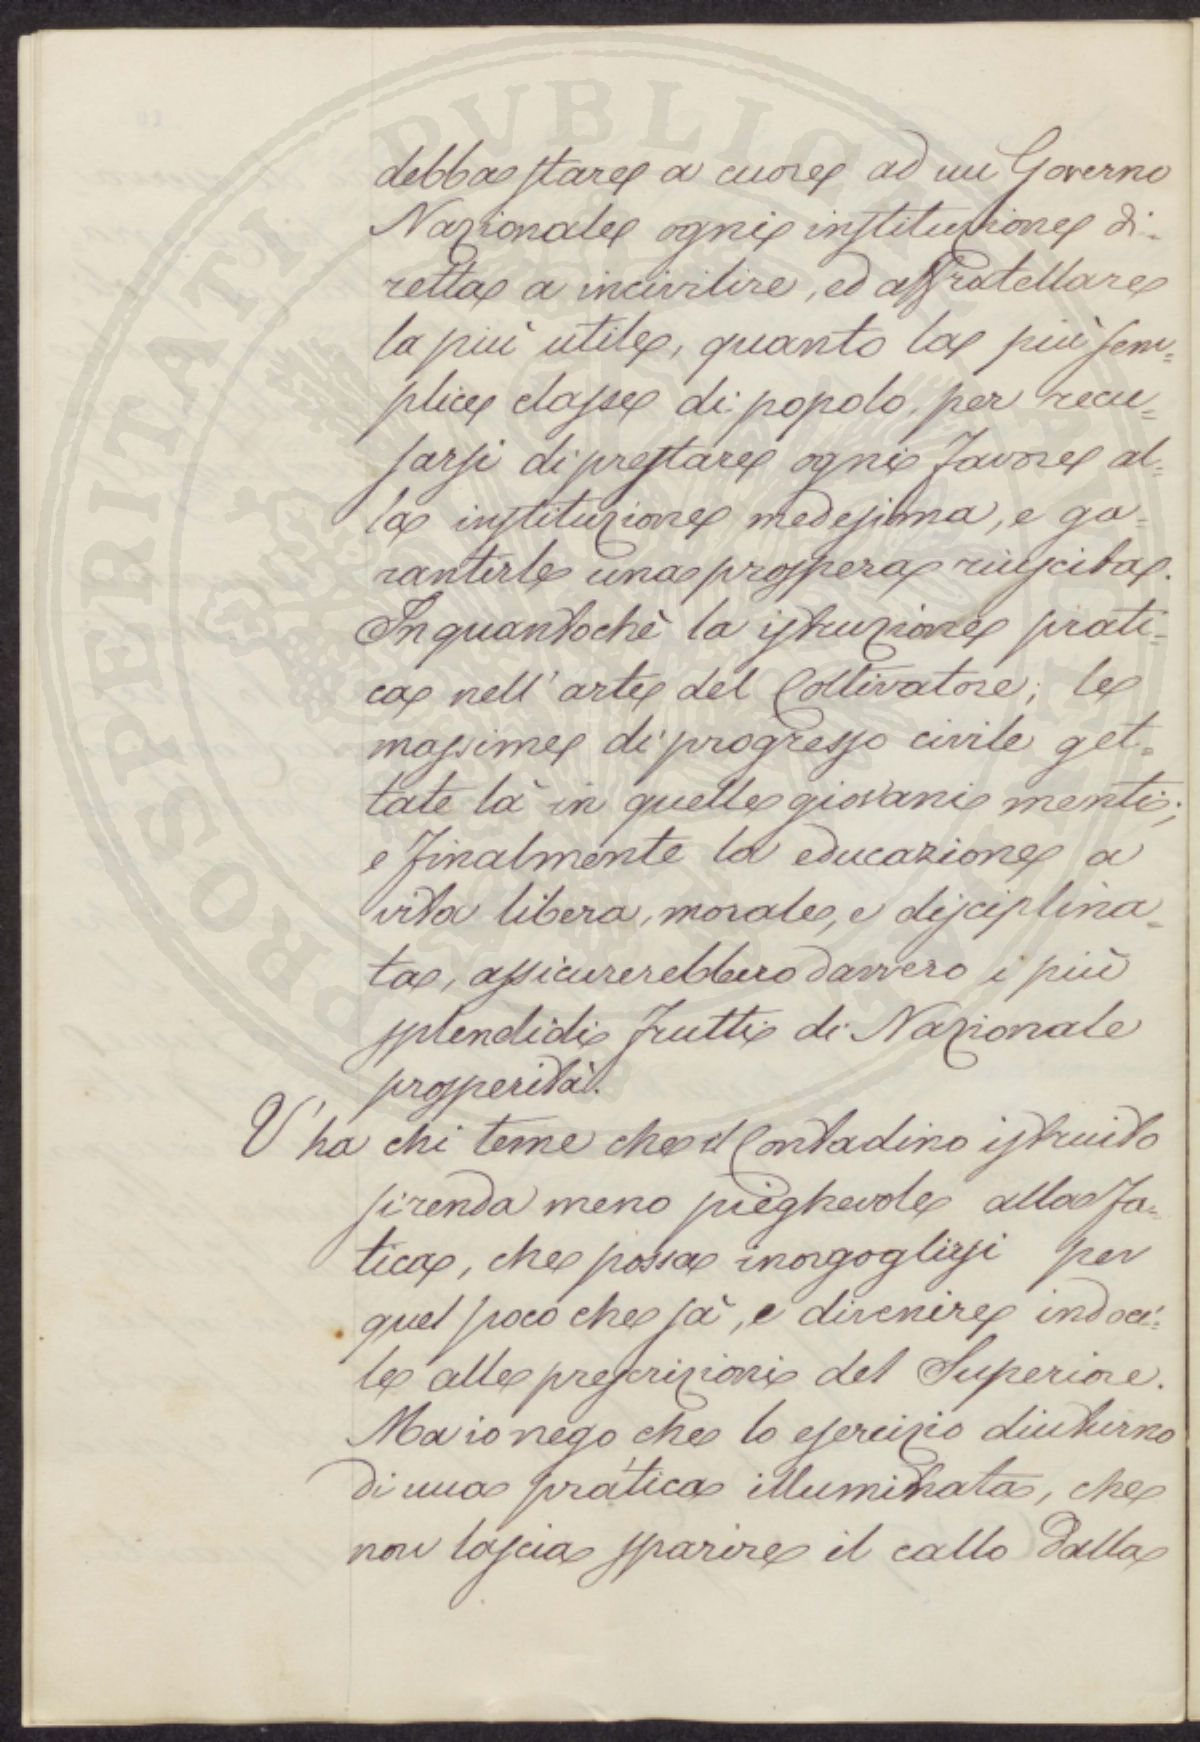 debba stare a cuore ad un Governo
Nazionale ogni instituzione di-
retta a incivilire, ed affratellare
la più utile, quanto la più sem=
plice classe di popolo, per recu=
sarsi di prestare ogni favore al=
la instituzione medesima, e ga=
rantirle una prospera riuscita.
Inquantochè la istruzione prati=
ca nell'arte del Coltivatore; le
massime di progresso civile get=
tate là in quelle giovani menti;
e finalmente la educazione a
vita libera, morale, e disciplina=
ta, assicurerebbero davvero i più
splendidi frutti di Nazionale
prosperità.
V'ha chi teme che il Contadino istruito
si renda meno pieghevole alla fa=
tica, che possa inorgoglirsi per
quel poco che sà, e divenire indoci=
le alle prescrizioni del Superiore.
Ma io nego, che lo esercizio diuturno
di una pratica illuminata, che
non lascia sparire il callo dalla
PROSPERITATI PVBLICAE AVGENDAE